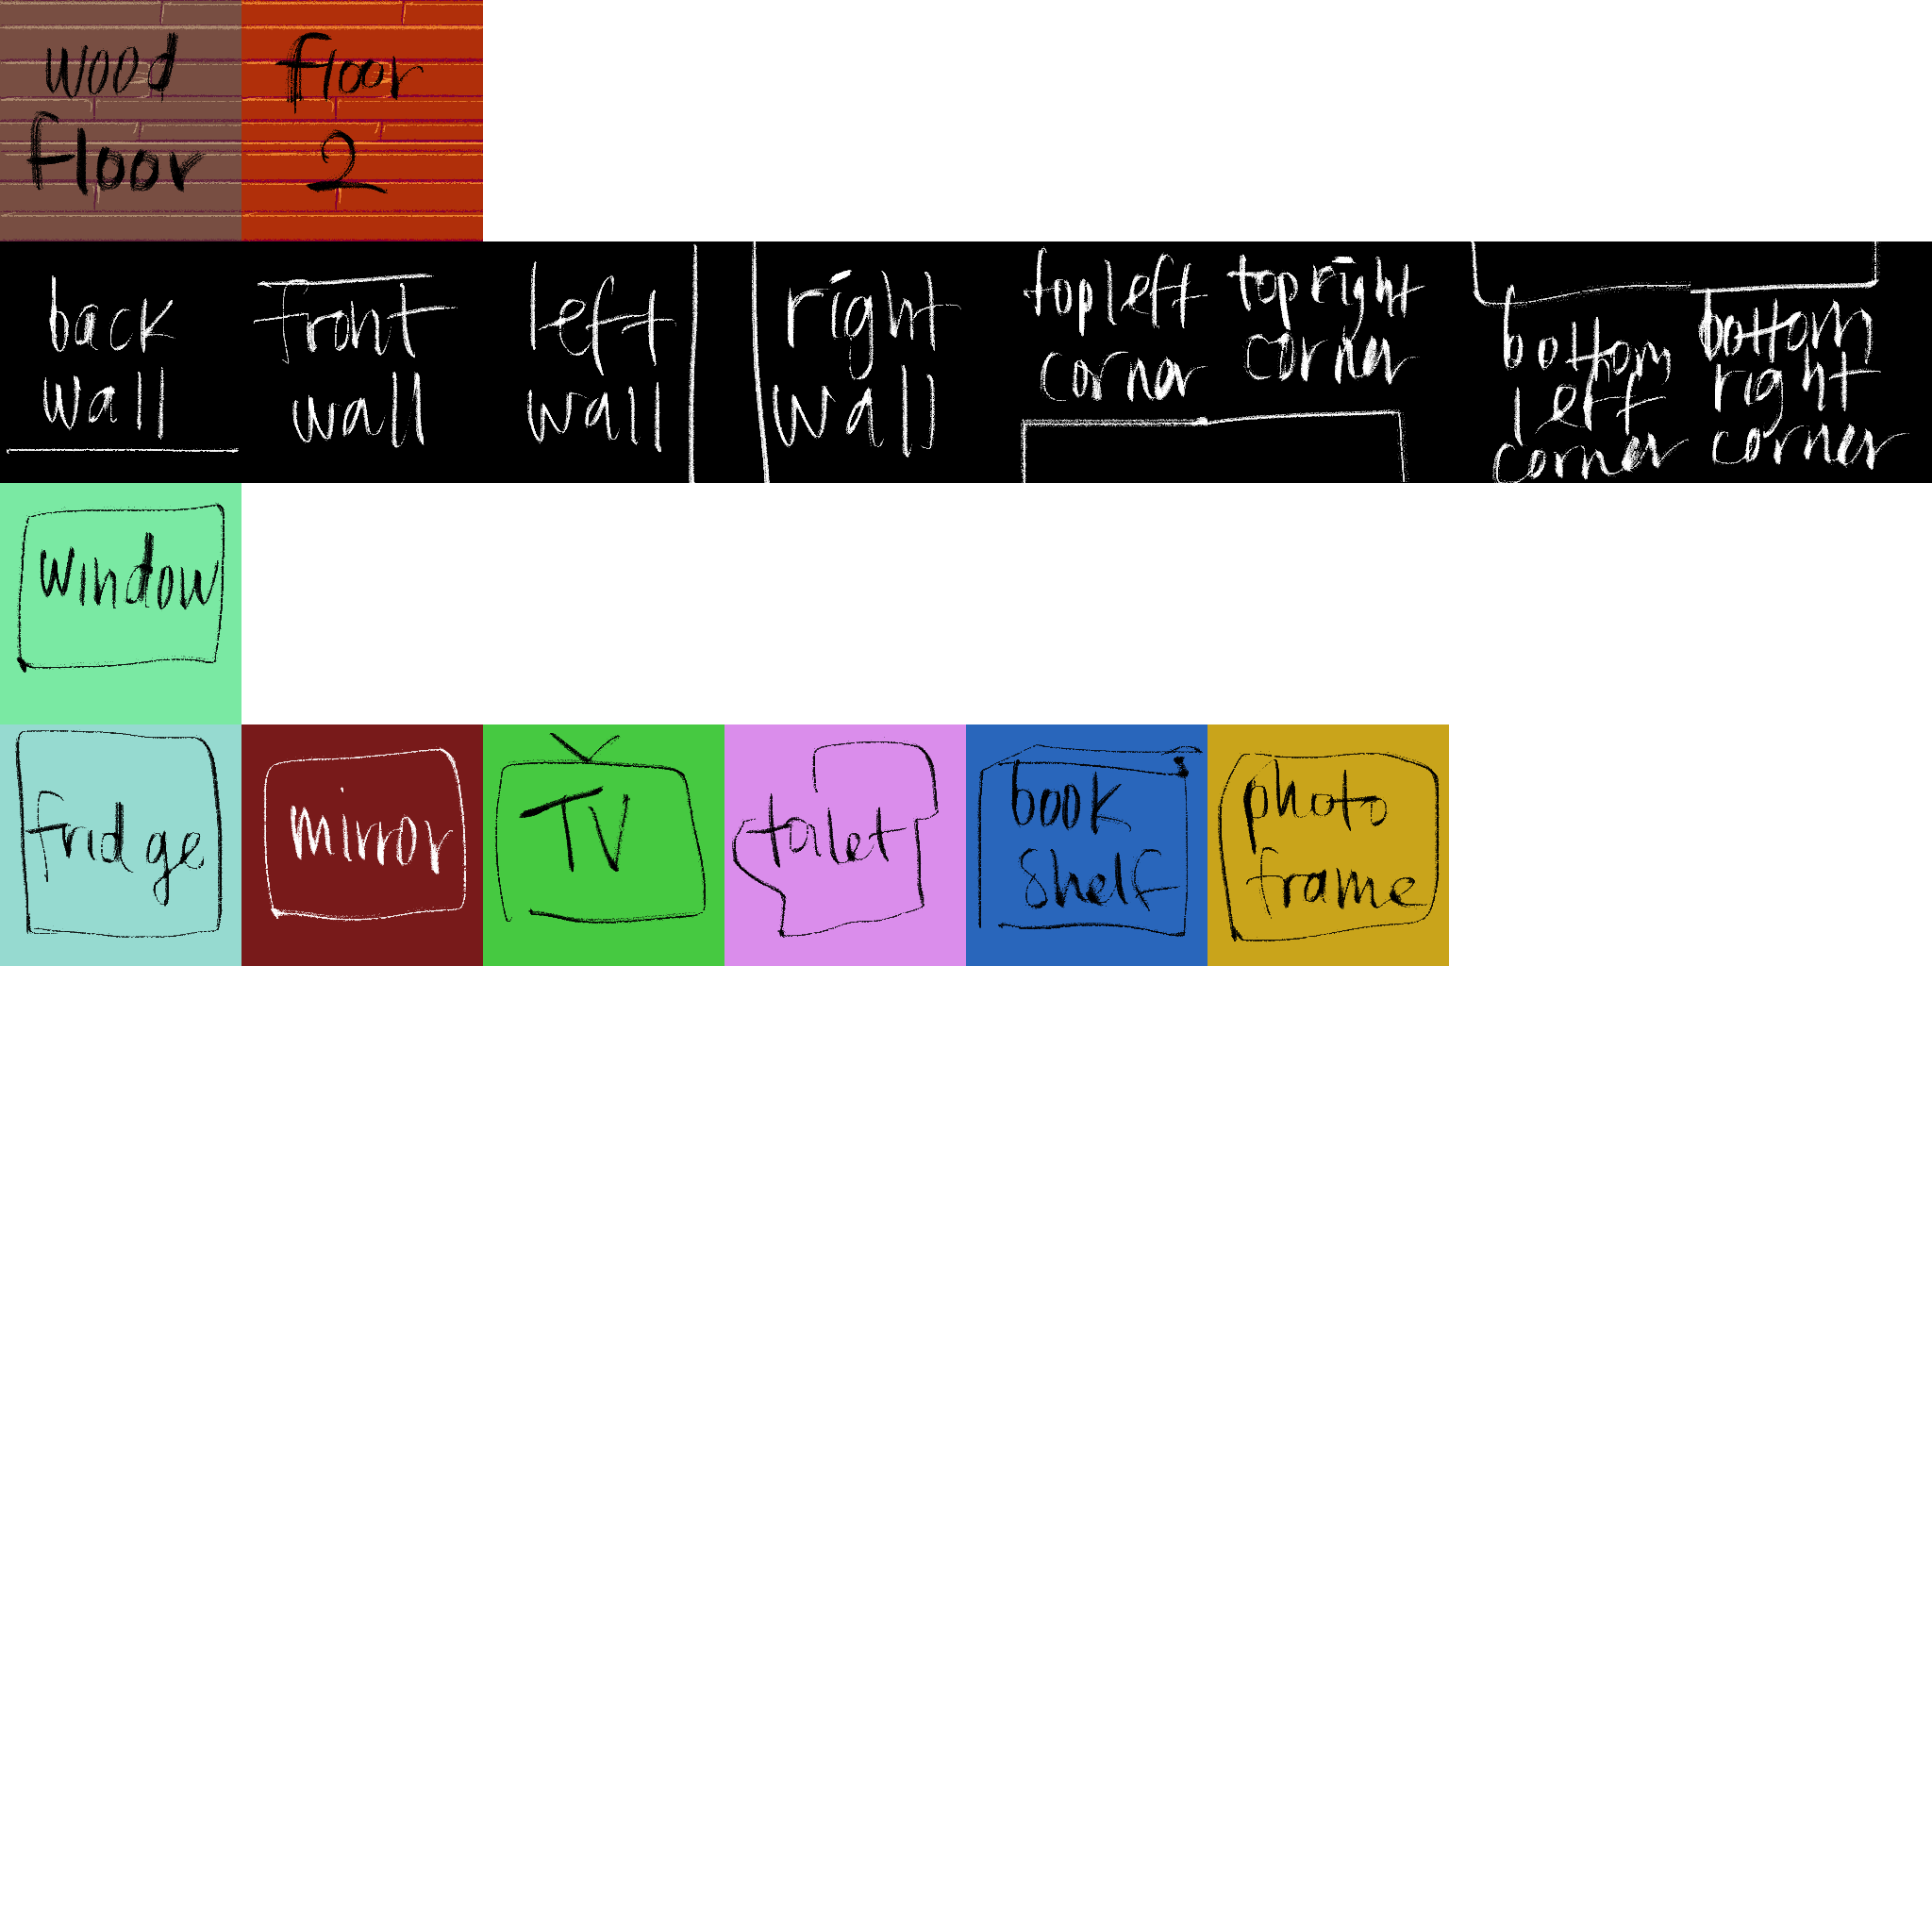 wood
floor
floor
2
back
wall
front
wall
left
wall
right
wall
top left
corner
top right
corner
bottom
left
corner
bottom
right
corner
window
fridge
mirror
TV
toilet
book
shelf
photo
frame